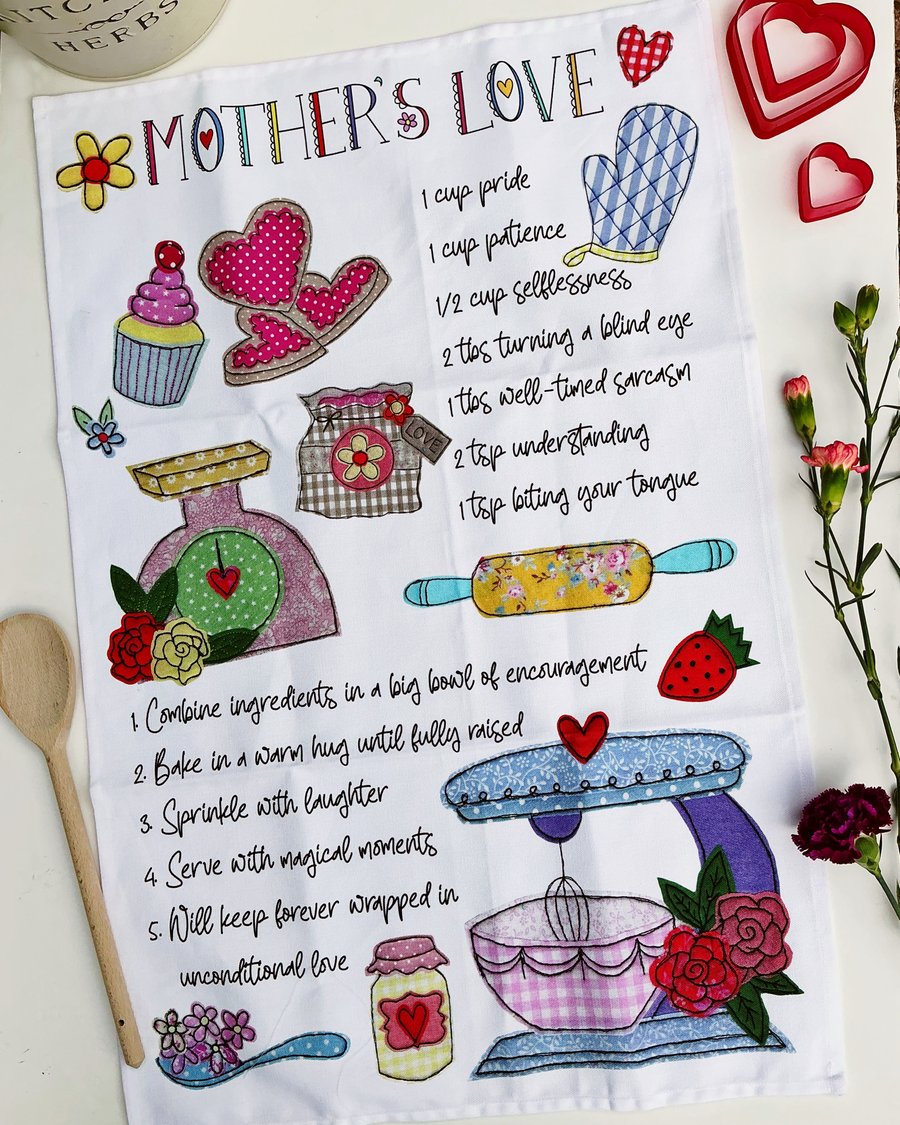 KITCHEN
HERBS
MOTHER'S LOVE
1 cup pride
1 cup patience
1/2 cup selflessness
2 tbs turning a blind eye
1 tbs well-timed sarcasm
2 tsp understanding
1 tsp biting your tongue
LOVE
1. Combine ingredients in a big bowl of encouragement
2. Bake in a warm hug until fully raised
3. Sprinkle with laughter
4 Serve with magical moments
5. Will keep forever wrapped in
unconditional love